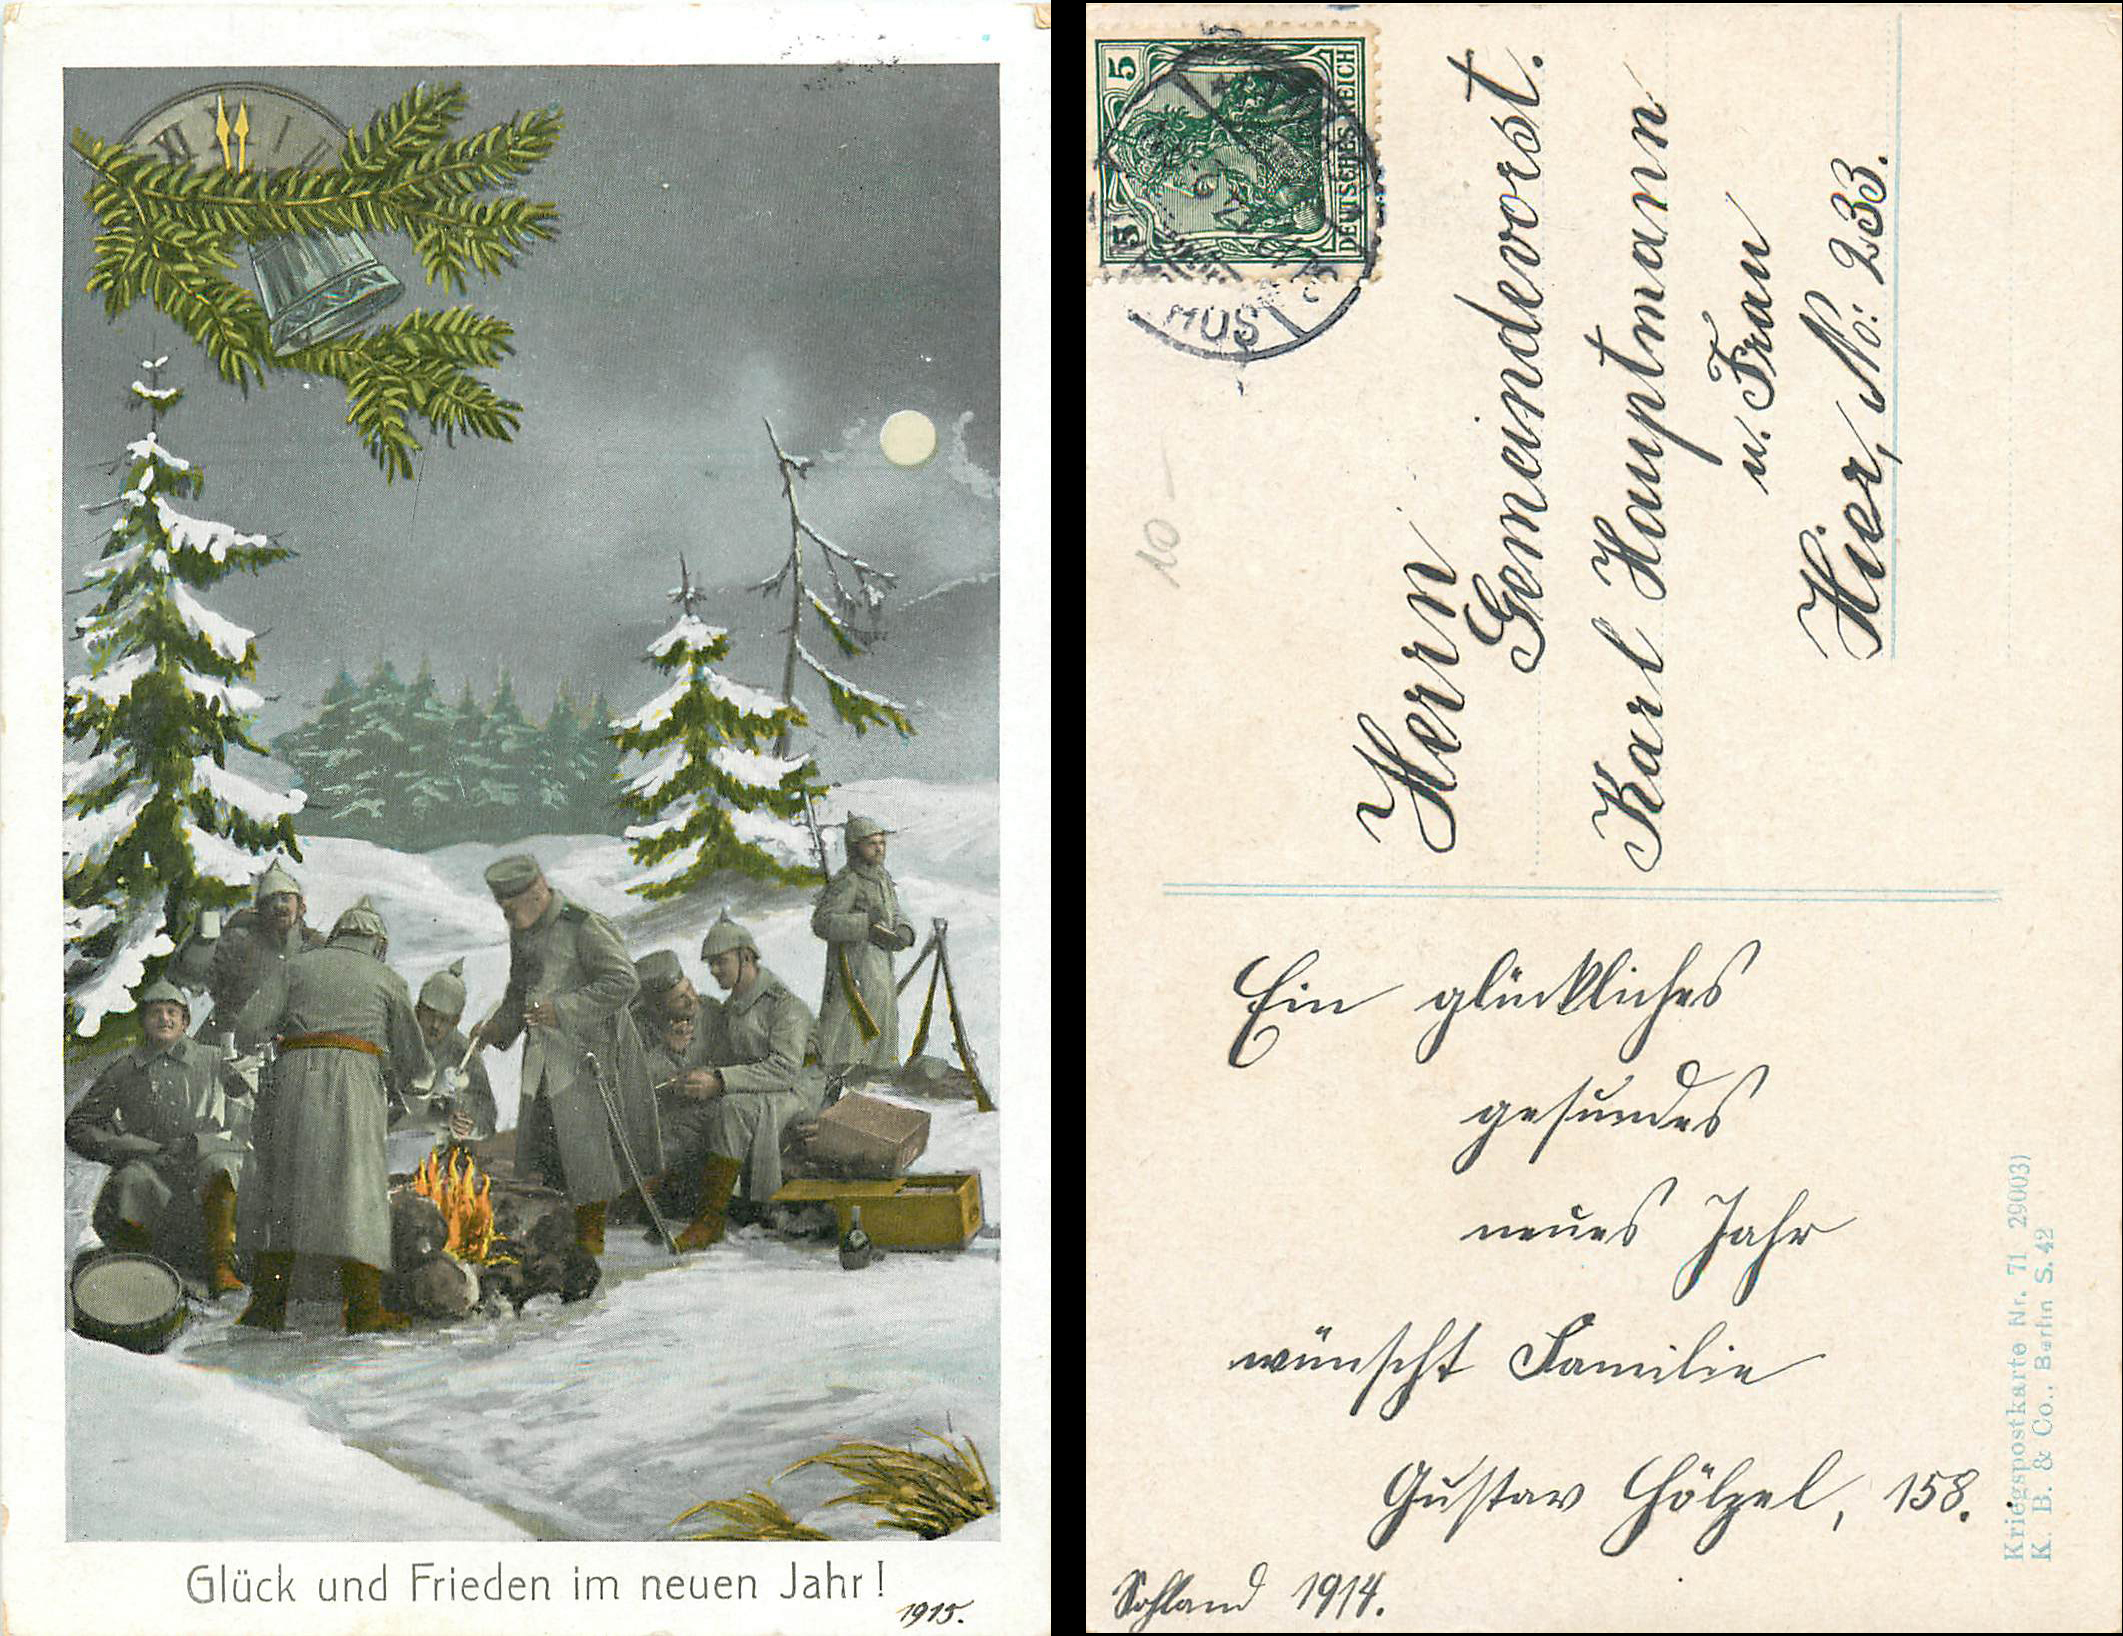 XI XII I II
Glück und Frieden im neuen Jahr!
1915.
5 5
DEUTSCHES REICH
Herrn
Gemeindevorst.
Karl Hauptmann
u. Frau
Hier, No: 233.
10 -
Ein glückliches
gesundes
neues Jahr
wünscht Familie
Gustav Hölzel, 158.
Sohland 1914.
Kriegspostkarte Nr. 71 29003)
K. B. & Co., Berlin S. 42